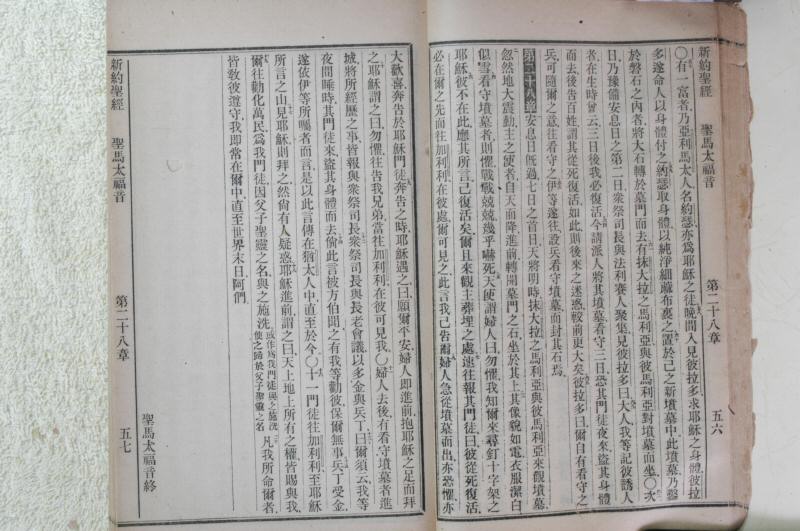 新約聖經 聖馬太福音 第二十八章 五六
〇有一富者乃亞利馬太人名約瑟亦爲耶穌之徒晚間入見彼拉多求耶穌之身體彼拉
多遂命人以身體付之約瑟取身體以純淨細蔴布裹之置於己之新墳墓中此墳墓乃鑿
於磐石之內者將大石轉於墓門而去有抹大拉之馬利亞與彼馬利亞對墳墓而坐〇次
日乃豫備安息日之第二日衆祭司長與法利賽人聚集見彼拉多曰大人我等記彼誘人
者在生時曾云三日後我必復活今請派人將其墳墓看守三日恐其門徒夜來盜其身體
而去後告百姓謂其從死復活如此則後來之迷惑較前更大矣彼拉多曰爾自有看守之
兵可隨爾之意往看守之伊等遂往設兵看守墳墓而封其石焉
第二十八章安息日旣過七日之首日天將明時抹大拉之馬利亞與彼馬利亞來觀墳墓
忽然地大震動主之使者自天而降進前轉開墓門之石坐於其上其像貌如電衣服潔白
似雪看守墳墓者則懼戰戰兢兢幾乎嚇死天使謂婦人曰勿懼我知爾來尋釘十字架之
耶穌彼不在此應其所言已復活矣爾且來觀主葬埋之處速往報其門徒曰彼從死復活
必在爾之先而往加利利在彼處爾可見之此言我已告爾婦人急從墳墓而出亦恐懼亦
大歡喜奔告於耶穌門徒奔告之時耶穌遇之曰願爾平安婦人卽進前抱耶穌之足而拜
之耶穌謂之曰勿懼往告我兄弟當往加利利在彼可見我〇婦人去後有看守墳墓者進
城將所經歷之事皆報與衆祭司長衆祭司長與長老會議以多金與兵丁曰爾須云我等
夜間睡時其門徒來盜其身體而去倘此言被方伯聞之有我等勸彼保爾無事兵丁受金
遂依伊等所囑者而言是以此言傳在猶太人中直至於今〇十一門徒往加利利至耶穌
所言之山見耶穌則拜之然尙有人疑惑耶穌進前謂之曰天上地上所有之權皆賜與我
爾往勸化萬民爲我門徒因父子聖靈之名與之施洗或作爲我門徒與之施洗使之歸於父子聖靈之名凡我所命爾者
皆敎彼遵守我卽常在爾中直至世界末日阿們
聖馬太福音終
新約聖經 聖馬太福音 第二十八章 五七